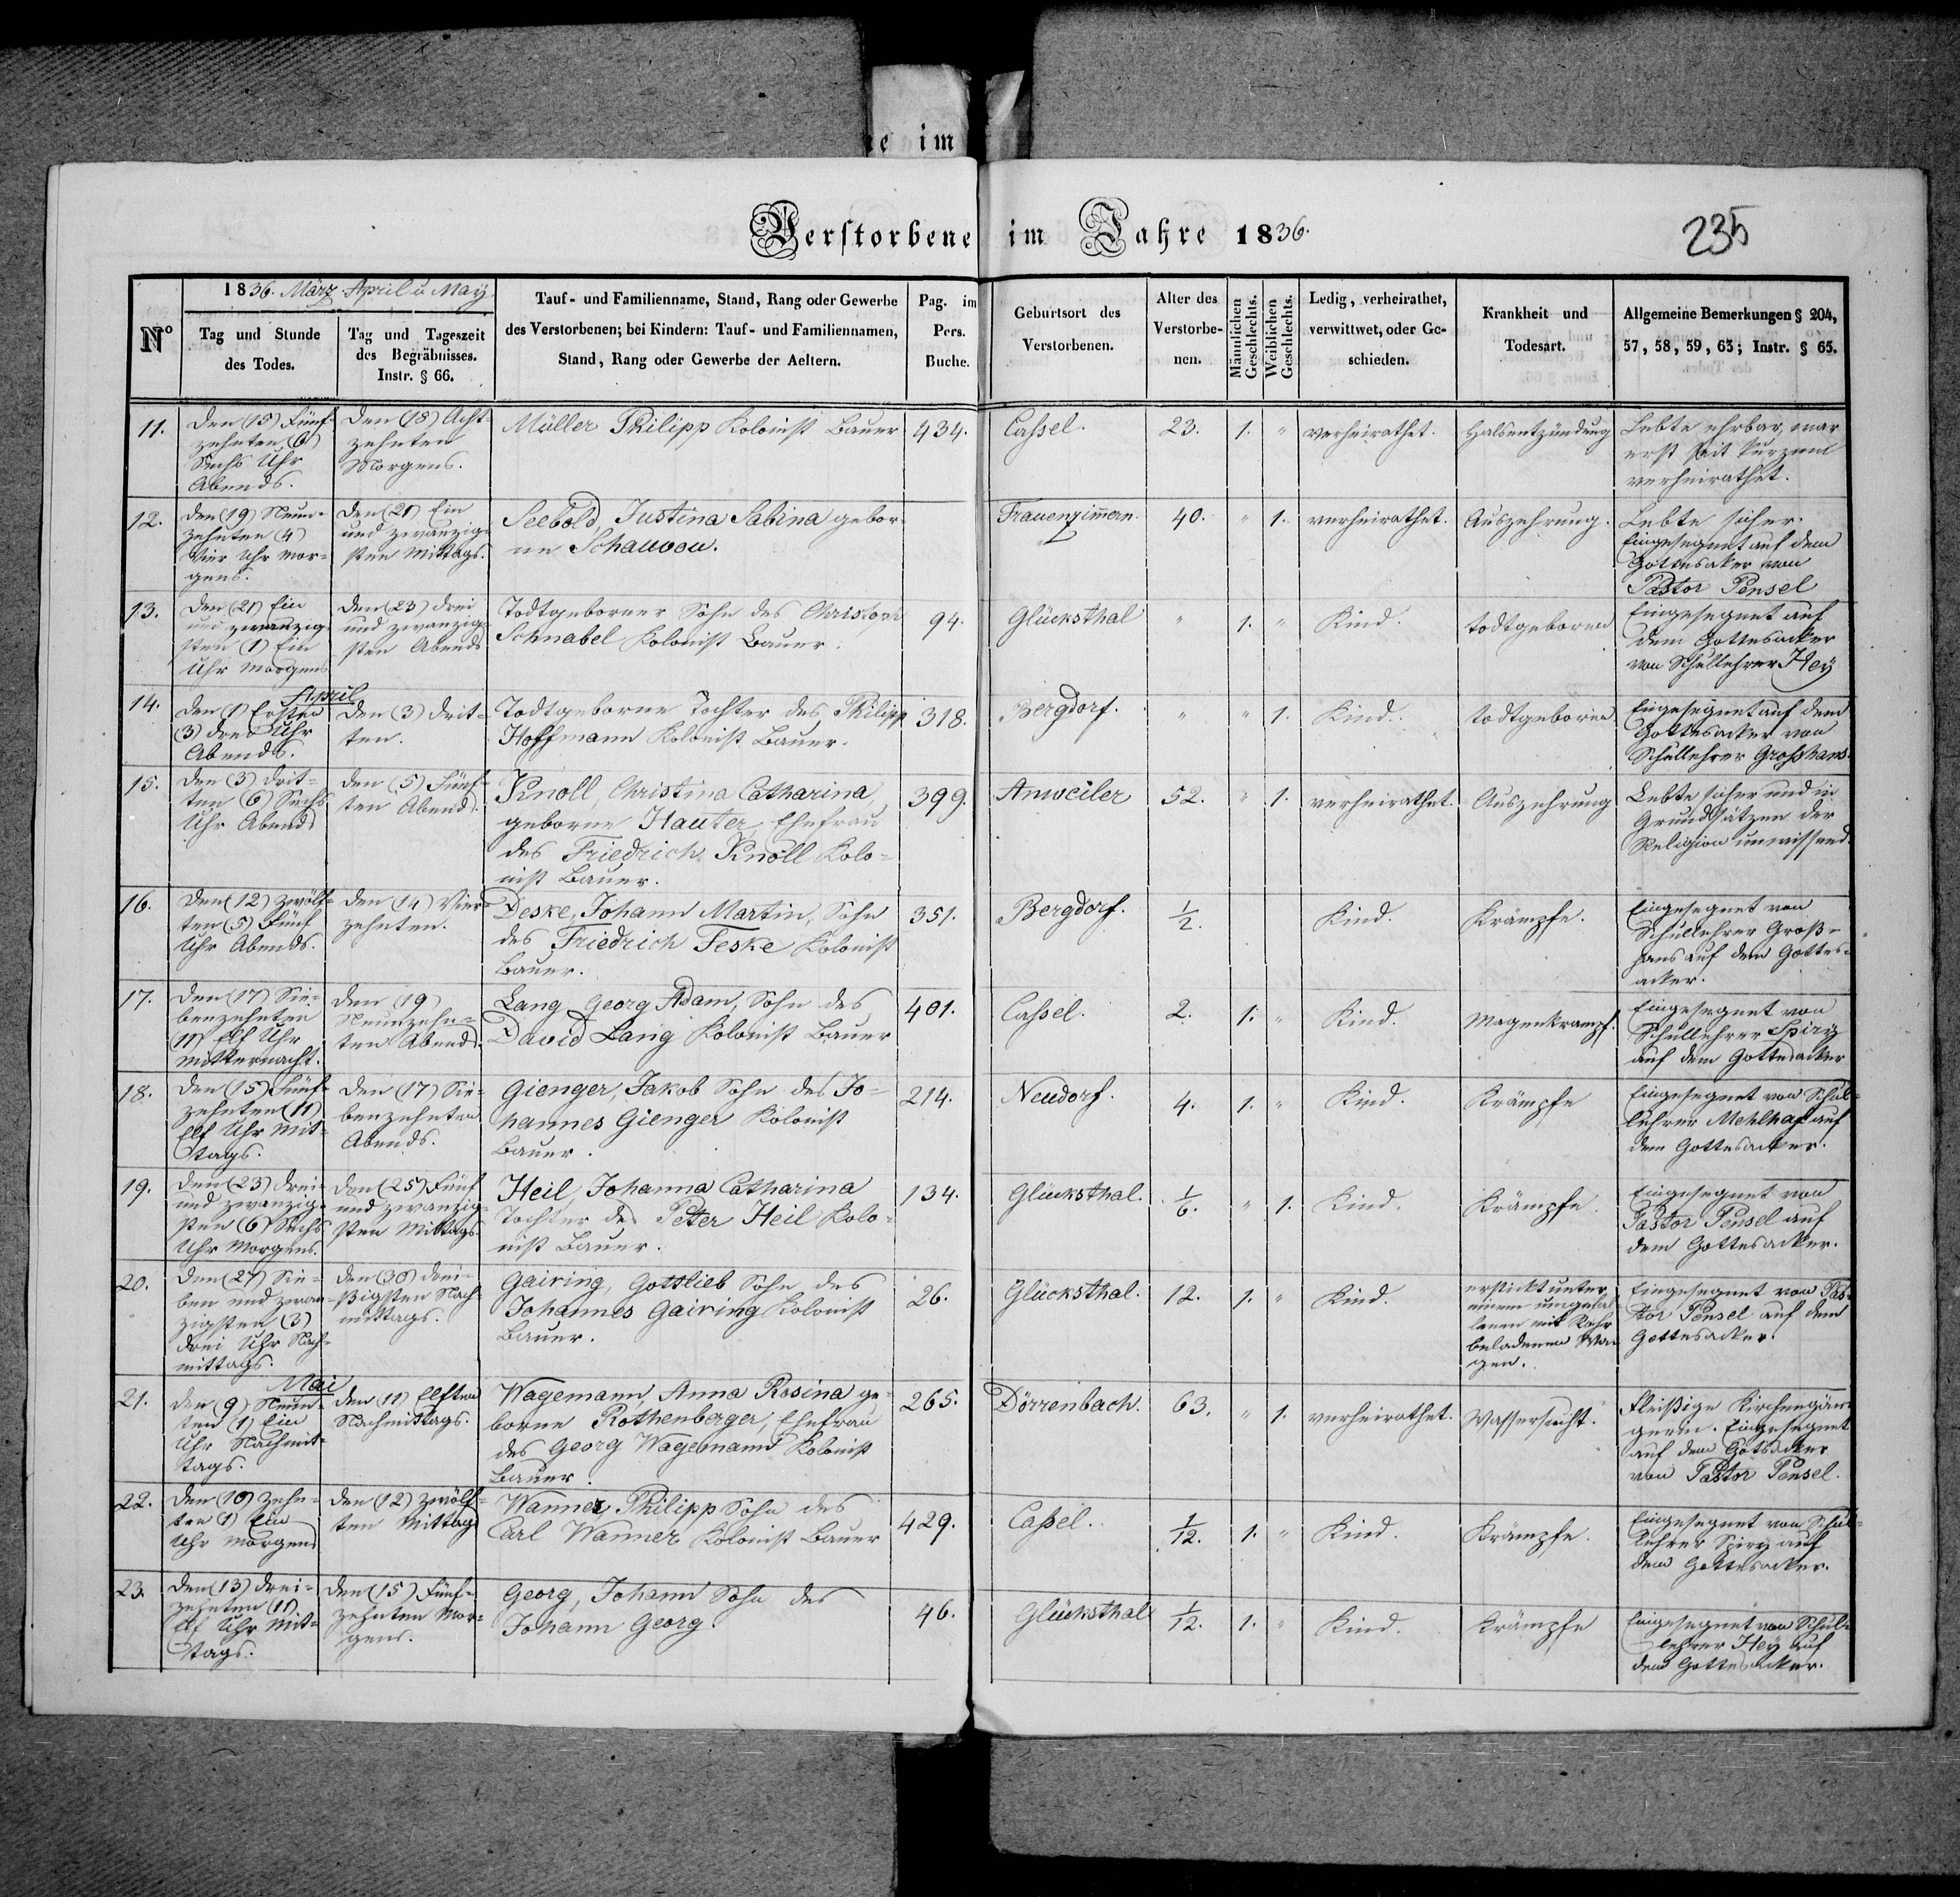 e im
Verstorbene im Jahre 1836.
235
Nº
1836. März. April u May.
Tag und Stunde
des Todes.
Tag und Tageszeit
des Begräbnisses.
Instr. § 66.
Tauf- und Familienname, Stand, Rang oder Gewerbe
des Verstorbenen; bei Kindern: Tauf- und Familiennamen,
Stand, Rang oder Gewerbe der Aeltern.
Pag. im
Pers.
Buche.
Geburtsort des
Verstorbenen.
Alter des
Verstorbe-
nen.
Männlichen
Geschlechts.
Weiblichen
Geschlechts.
Ledig, verheirathet,
verwittwet, oder Ge-
schieden.
Krankheit und
Todesart.
Allgemeine Bemerkungen § 204,
57, 58, 59, 63; Instr. § 65.
11.
Den (15) Fünf-
zehnten (6)
Sechs Uhr
Abends.
Den (18) Acht-
zehnten
Morgens.
Müller Philipp Kolonist Bauer
434.
Cassel.
23.
1.
"
verheirathet.
Halsentzündung
Lebte ehrbar, war
erst seit kurzem
verheirathet.
12.
Den (19) Neun-
zehnten (4)
Vier Uhr Mor-
gens.
Den (21) Ein
und zwanzig-
sten Mittags.
Seebold, Justina Sabina gebor-
ne Schauvou.
Frauenzimern.
40.
"
1.
verheirathet.
Auszehrung.
Lebte sicher.
Eingesegnet auf dem
Gottesaker von
Pastor Pensel
13.
Den (21) Ein
und zwanzig-
sten (1) Ein
Uhr Morgens
Den (23) drei
und zwanzig-
sten Abends
Todtgeborner Sohn des Christoph
Schnabel Kolonist Bauer.
94.
Glücksthal
"
1.
"
Kind.
todtgeboren
Eingesegnet auf
dem Gottesacker
von Schullehrer Hey
14.
April
Den (1) Ersten
(3) drei Uhr
Abends.
Den (3) drit-
ten.
Todtgeborne Tochter des Philipp
Hoffmann Kolonist Bauer.
318.
Bergdorf.
"
"
1.
Kind.
todtgeboren.
Eingesegnet auf dem
Gottesacker von
Schullehrer Grosshans.
15.
Den (3) drit-
ten (6) Sechs
Uhr Abends
Den (5) Fünf-
ten Abends.
Knoll, Christina Catharina,
geborne Hauter, Ehefrau
des Friedrich Knoll Kolo-
nist Bauer.
399.
Anweiler
52.
"
1.
verheirathet.
Auszehrung
Lebte sicher und in
Grundsätzen der
Religion unwissend.
16.
Den (12) zwölf-
ten (5) Fünf
Uhr Abends.
Den (14) Vier-
zehnten.
Deske, Johann Martin, Sohn
des Friedrich Teske Kolonist
Bauer.
351.
Bergdorf.
1/2.
Kind.
Krämpfe.
Eingesegnet von
Schullehrer Groß-
hans auf dem Gottes-
acker.
17.
Den (17) Sie-
benzehnten
(11) Elf Uhr
Mitternacht.
Den (19)
Neunzehn-
ten Abends.
Lang, Georg Adam, Sohn des
David Lang Kolonist Bauer
401.
Cassel.
2.
1.
"
Kind.
Magenkrampf.
Eingesegnet von
Schullehrer Spiry
auf dem Gottesacker
18.
Den (15) Fünf-
zehnten (11)
Elf Uhr Mit-
tags.
Den (17) Sie-
benzehnten
Abends.
Gienger, Jakob Sohn des Jo-
hannes Gienger Kolonist
Bauer.
214.
Neudorf.
4.
1.
"
Kind.
Krämpfe
Eingesegnet von Schul-
lehrer Mehlhaf auf
dem Gottesacker.
19.
Den (23) drei
und zwanzig-
sten (6) Sechs
Uhr Morgens.
Den (25) Fünf
und zwanzig-
sten Mittags.
Heil, Johanna Catharina
Tochter des Peter Heil Kolo-
nist Bauer.
134.
Glücksthal.
1/6.
"
1.
Kind.
Krämpfe.
Eingesegnet von
Pastor Pensel auf
dem Gottesacker.
20.
Den (27) Sie-
ben und zwan-
zigsten (3)
drei Uhr Nach-
mittags.
Den (30) drei-
ßigsten Nach-
mittags.
Gairing, Gottlieb, Sohn des
Johannes Gairing Kolonist
Bauer.
26.
Glücksthal.
12.
1.
"
Kind.
erstickt unter
einem umgefal-
lenen mit Rohr
beladenen Wa-
gen.
Eingesegnet von Pas-
tor Pensel auf dem
Gottesacker.
21.
Mai
Den (9) Neun-
ten (1) Ein
Uhr Nachmit-
tags.
Den (11) Elften
Nachmittags.
Wagemann, Anna Rosina ge-
borne Rothenberger, Ehefrau
des Georg Wagemann Kolonist
Bauer.
265.
Dörrenbach.
63.
"
1.
verheirathet.
Wassersucht.
Fleißige Kirchengän-
gerin. Eingesegnet
auf dem Gotsacker
von Pastor Pensel.
22.
Den (10) zehn-
ten (1) Ein
Uhr Morgens
Den (12) zwölf-
ten Mittag
Wanner, Philipp Sohn des
Carl Wanner Kolonist Bauer
429.
Cassel.
1/12.
1.
"
Kind.
Krämpfe.
Eingesegnet von Schul-
lehrer Spiry auf
dem Gottesacker.
23.
Den (13) drei-
zehnten (11)
Elf Uhr Mit-
tags.
Den (15) Fünf-
zehnten Mor-
gens.
Georg, Johann Sohn des
Johann Georg.
46.
Glücksthal
1/12.
1.
"
Kind.
Krämpfe
Eingesegnet von Schul-
lehrer Hey auf
dem Gottesacker.